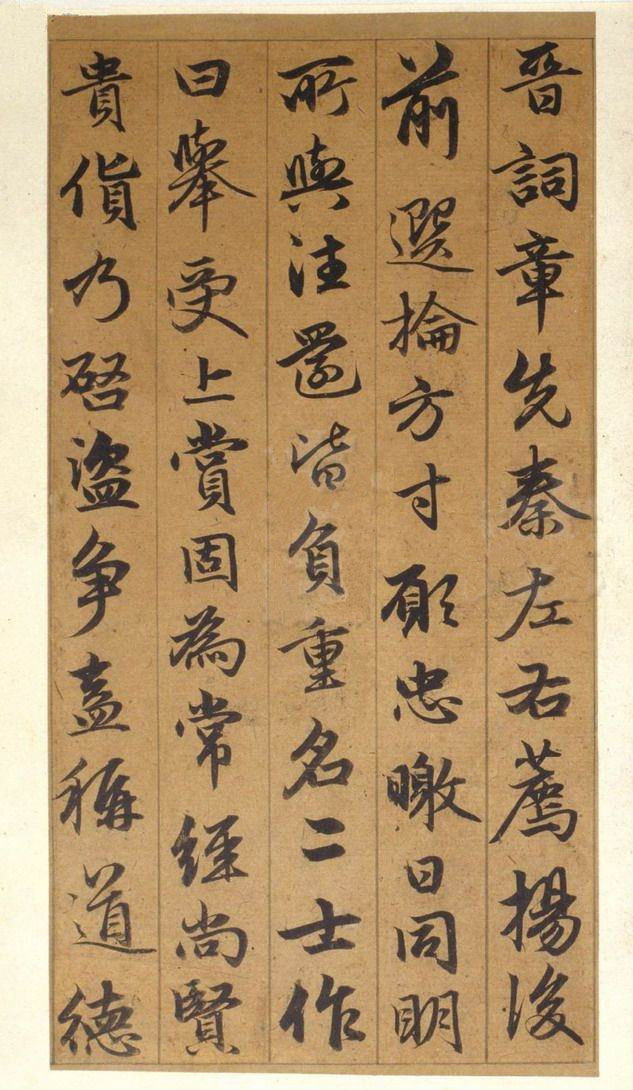 晉詞章先秦左右薦揚後
前選掄方寸願忠曒日同明
所與往還皆負重名二士作
曰舉受上賞固為常經尚賢
貴貨乃啓盜爭盍稱道德